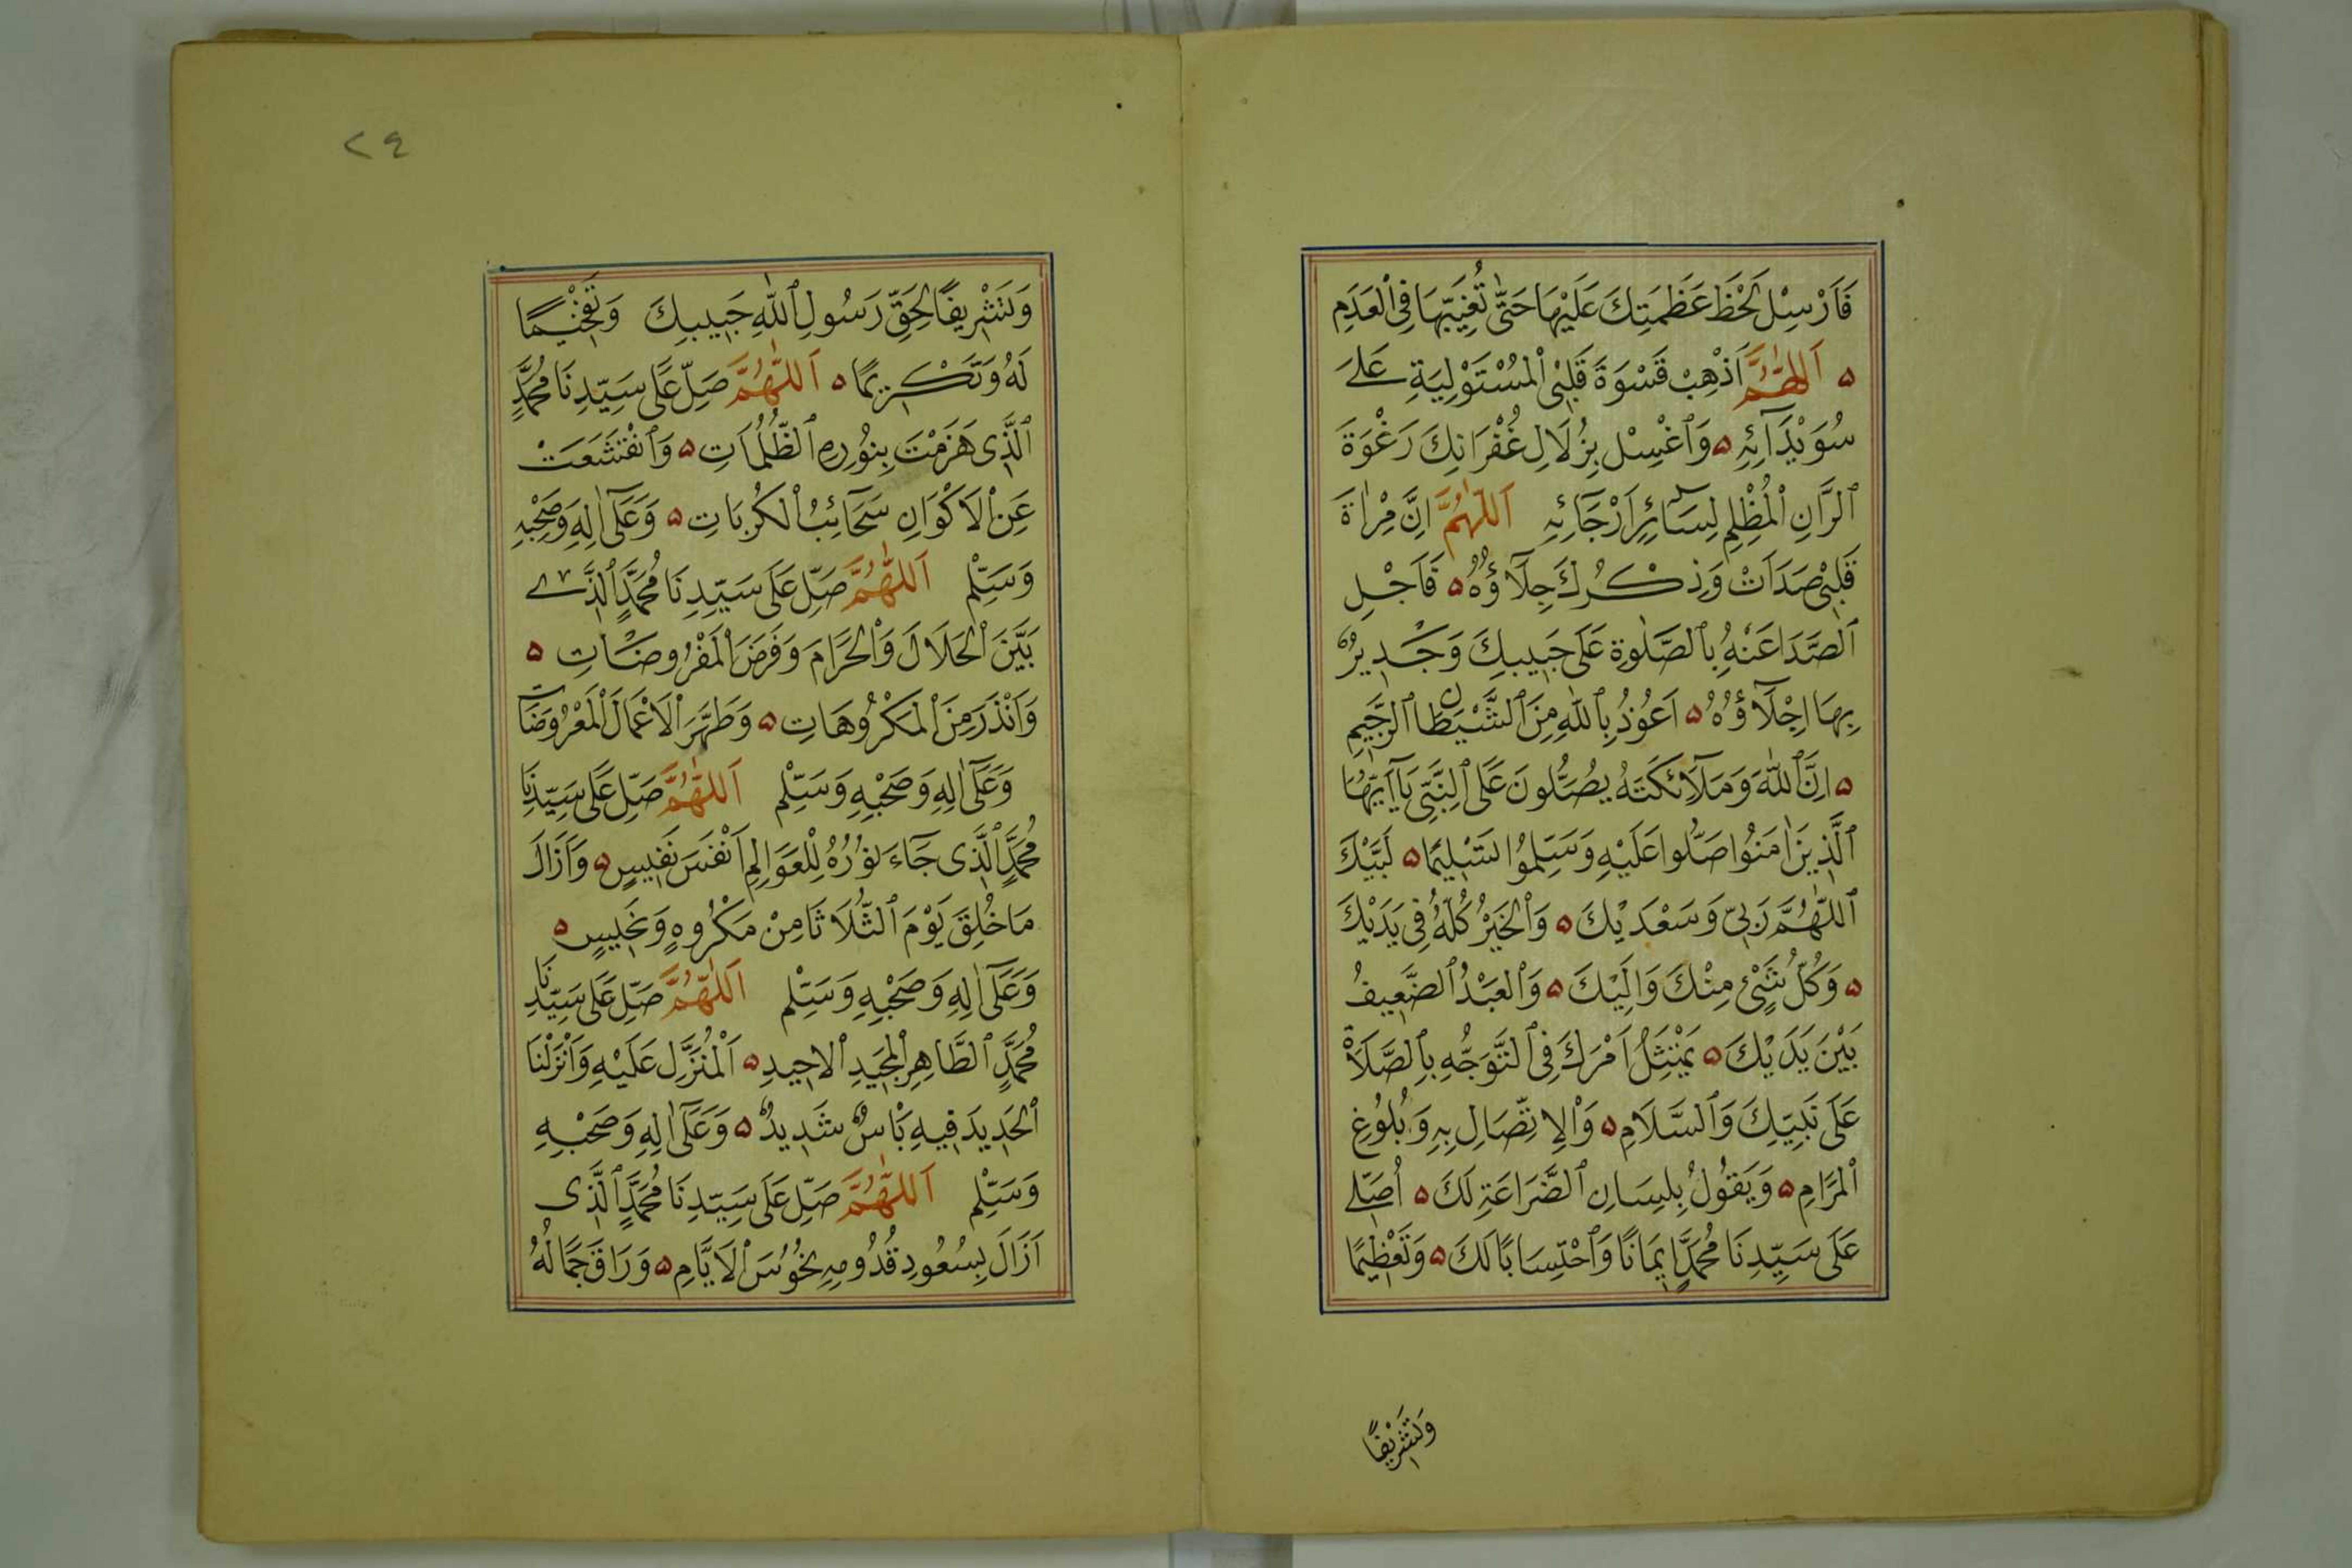 فَاَرْسِلْ لَحْظَ عَظَمَتِكَ عَلَيْهَا حَتّٰى تُغِيَبّهَا فِى الْعَدَمِ
۵ اَللّٰهُمَّ اَذْهِبْ قَسْوَةَ قَلْبِى الْمُسْتَوْلِيَةِ عَلٰے
سُوَيْدَآئِهِ ۵ وَاغْسِلْ بِزُلَالِ غُفْرَانِكَ رَغْوَةَ
الرَّانِ الْمُظْلِمِ لِسَآئِرِ اَرْجَائِهِ اَللّٰهُمَّ اِنَّ مِرْاٰةَ
قَلْبِى صَدَاَتْ وَذِكْرُكَ جِلَآؤُهُ ۵ فَاَجْلِ
الصَّدَا عَنْهُ بِالصَّلٰوةِ عَلٰى حَبِيبِكَ وَجَدِيرٌ
بِهَا اِجْلَآؤُهُ ۵ اَعُوْذُ بِاللّٰهِ مِنَ الشَّيْطَانِ الرَّجِيمِ
۵ اِنَّ اللّٰهَ وَمَلَآئِكَتَهُ يُصَلُّونَ عَلَى النَّبِىِّ يَآ اَيُّهَا
الَّذِينَ اٰمَنُوا صَلُّوا عَلَيْهِ وَسَلِّمُوا تَسْلِيمًا ۵ لَبَّيْكَ
اللّٰهُمَّ رَبِىّ وَسَعْدَيْكَ ۵ وَالْخَيْرُ كُلُّهُ فِى يَدَيْكَ
۵ وَكُلُّ شَىْءٍ مِنْكَ وَاِلَيْكَ ۵ وَالْعَبْدُ الضَّعِيفُ
بَيْنَ يَدَيْكَ ۵ يَمْتَثِلُ اَمْرَكَ فِى التَّوَجُّهِ بِالصَّلَاةِ
عَلٰى نَبِيِّكَ وَالسَّلَامِ ۵ وَالْاِتِّصَالِ بِهِ وَبُلُوُغِ
الْمَرَامِ ۵ وَيَقُولُ بِلِسَانِ الضَّرَاعَةِ لَكَ ۵ اُصَلِّے
عَلٰى سَيِّدِنَا مُحَمَّدٍ اِيمَانًا وَاحْتِسَابًا لَكَ ۵ وَتَعْظِيمًا
وَتَشْرِيْفًا
٢٩
وَتَشْرِيفًا لِحَقِّ رَسُولِ اللّٰهِ حَبِيبِكَ وَتَفْخِيمًا
لَهُ وَتَكْرِيمًا ۵ اَللّٰهُمَّ صَلِّ عَلٰى سَيِّدِنَا مُحَمَّدٍ
الَّذِى هَزَمْتَ بِنُورِهِ الظُّلُمَاتِ ۵ وَانْقَشَعَتْ
عَنِ الْاَكْوَانِ سَحَآئِبُ الْكُرُبَاتِ ۵ وَعَلٰٓى اٰلِهِ وَصَحْبِهِ
وَسَلِّمْ اَللّٰهُمَّ صَلِّ عَلٰى سَيِّدِنَا مُحَمَّدٍ الَّذِے
بَيَّنَ الْحَلَالَ وَالْحَرَامَ وَفَرَضَ الْمَفْرُوضَاتِ ۵
وَاَنْذَرَ مِنَ الْمَكْرُوهَاتِ ۵ وَطَهَّرَ الْاَعْمَالَ الْمَعْرُوضَاتِ
وَعَلٰٓى اٰلِهِ وَصَحْبِهِ وَسَلِّمْ اَللّٰهُمَّ صَلِّ عَلٰى سَيِّدِنَا
مُحَمَّدٍ الَّذِى جَآءَ نُورُهُ لِلْعَوَالِمِ اَنْفَسَ نَفِيسٍ ۵ وَاَزَالَ
مَا خُلِقَ يَوْمَ الثُّلَاثَا مِنْ مَكْرُوهٍ وَنَحِيسٍ ۵
وَعَلٰٓى اٰلِهِ وَصَحْبِهِ وَسَلِّمْ اَللّٰهُمَّ صَلِّ عَلٰى سَيِّدِنَا
مُحَمَّدٍ الطَّاهِرِ الْمَجِيدِ الْاحِيدِ ۵ اَلْمُنَزَّلِ عَلَيْهِ وَاَنْزَلْنَا
الْحَدِيدَ فِيهِ بَاْسٌ شَدِيدٌ ۵ وَعَلٰٓى اٰلِهِ وَصَحْبِهِ
وَسَلِّمْ اَللّٰهُمَّ صَلِّ عَلٰى سَيِّدِنَا مُحَمَّدٍ الَّذِى
اَزَالَ بِسُعُودِ قُدُومِهِ نُحُوُسَ الْاَيَّامِ ۵ وَرَاقَ جَمَالُهُ